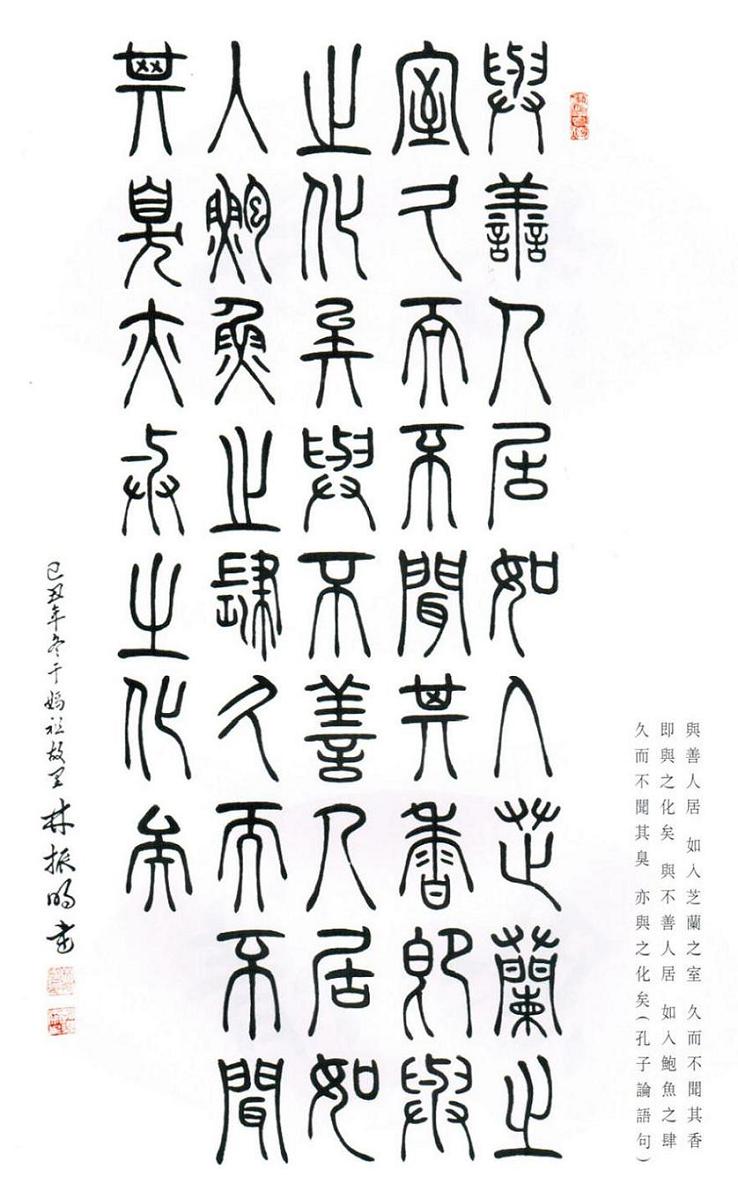 與善人居 如入芝蘭之室 久而不聞其香
即與之化矣 與不善人居 如入鮑魚之肆
久而不聞其臭 亦與之化矣(孔子論語句)
與善人居如入芝蘭之
室久而不聞其香即與
之化矣與不善人居如
入鮑魚之肆久而不聞
其臭亦與之化矣
己丑年冬于媽祖故里林振明書